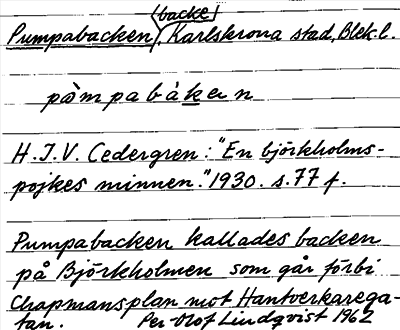 (backe)
Pumpabacken, Karlskrona stad, Blek. l.
pὰmpabàken
H.J.V. Cedergren: "En björkholms-
pojkes minnen." 1930. s. 77 f.
Pumpabacken kallades backen
på Björkholmen som går förbi
Chapmansplan mot Hantverkarega-
tan. Per-Olof Lindqvist 1962